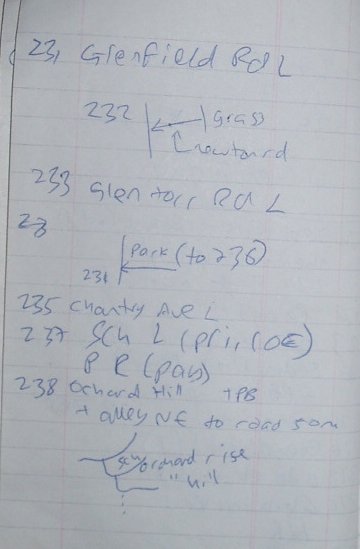 231 Glenfield Rd L
232
grass
newton rd
233 Glentorr Rd L
23
Park (to 236)
234
235 Chantry Ave L
237 Sch L (pri, CofE)
P R (pay)
238 Orchard Hill +PB
+ alley NE to road 50m
4w orchard rise
" hill